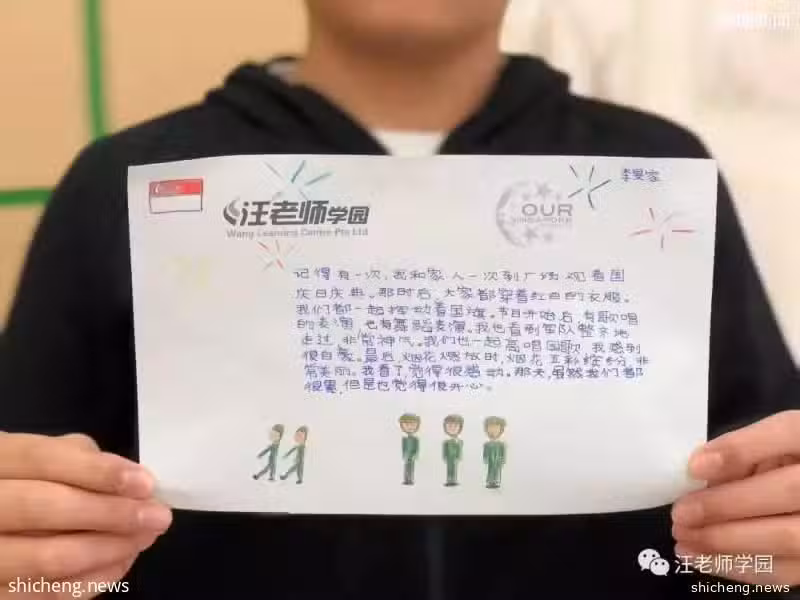 李旻家
汪老师学园
Wang Learning Centre Pte Ltd
OUR
SINGAPORE
记得有一次，我和家人一次到广场观看国
庆日庆典。那时后，大家都穿着红白的衣服。
我们都一起挥动着国旗。节目开始后，有歌唱
的表演，也有舞蹈表演。我也看到军队整齐地
走过，非常神气。我们也一起高唱国歌，我感到
很自豪。最后，烟花燃放时，烟花五彩缤纷，非
常美丽。我看了，觉得很感动。那天，虽然我们都
很累，但是也觉得很开心。
汪老师学园
shicheng.news
shicheng.news